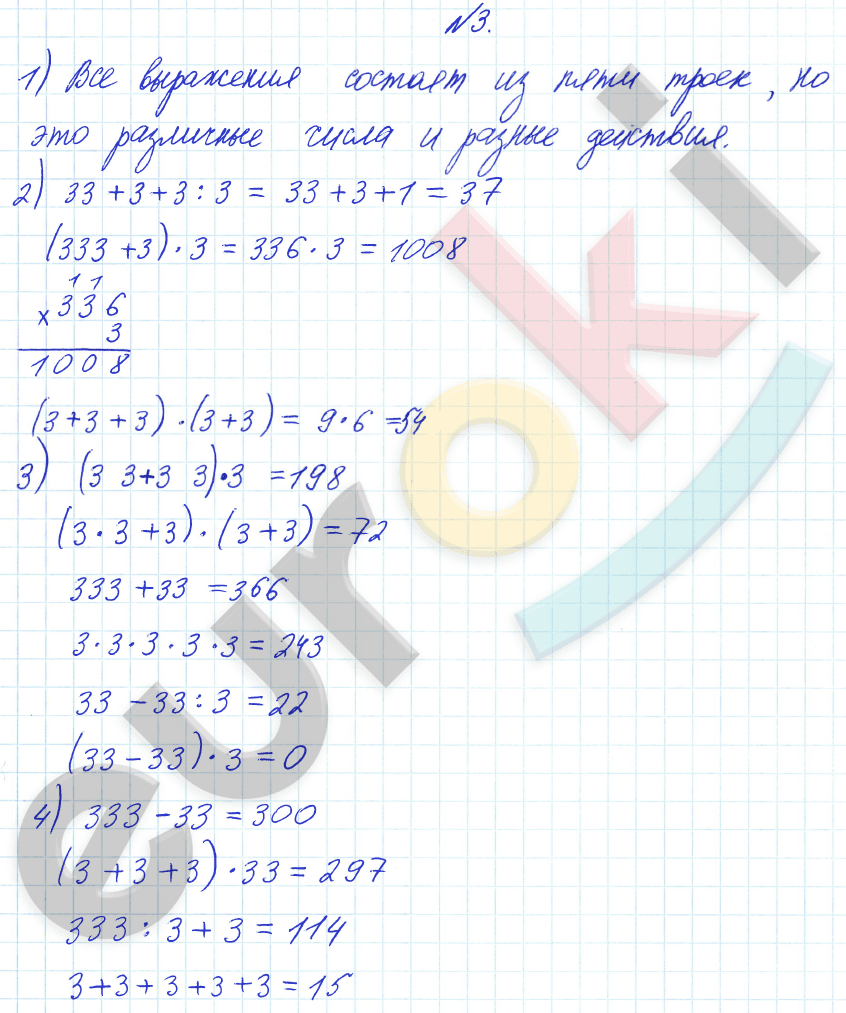 №3.
1) Все выражения состоят из пяти троек, но
это различные числа и разные действия.
2) 33 + 3 + 3 : 3 = 33 + 3 + 1 = 37
(333 + 3) · 3 = 336 · 3 = 1008
1 1
× 336
3
1008
(3 + 3 + 3) · (3 + 3) = 9 · 6 = 54
3) (3 3 + 3 3) · 3 = 198
(3 · 3 + 3) · (3 + 3) = 72
333 + 33 = 366
3 · 3 · 3 · 3 · 3 = 243
33 - 33 : 3 = 22
(33 - 33) · 3 = 0
4) 333 - 33 = 300
(3 + 3 + 3) · 33 = 297
333 : 3 + 3 = 114
3 + 3 + 3 + 3 + 3 = 15
euroki